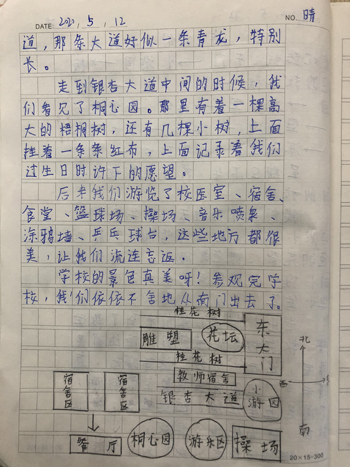 DATE: 2021, 5, 12
NO 晴
道，那条大道好似一条青龙，特别
长。
走到银杏大道中间的时候，我
们看见了桐心园。那里有着一棵高
大的梧桐树，还有几棵小树，上面
挂着一条条红布，上面记录着我们
过生日时许下的愿望。
后来我们游览了校医室、宿舍、
食堂、篮球场、操场、音乐喷泉、
涂鸦墙、乒乓球台，这些地方都很
美，让我们流连忘返。
学校的景色真美呀！参观完学
校，我们依依不舍地从南门出去了。
桂花树
雕塑
花坛
东大门
桂花树
教师宿舍
银杏大道
小游园
北
西
南
宿舍区
宿舍区
餐厅
桐心园
游乐园
操场
20×15=300